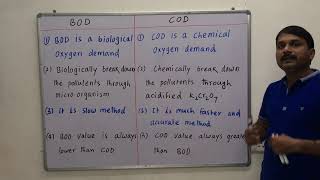 BOD
COD
(1) BOD is a biological
Oxygen demand
(1) COD is a Chemical
Oxygen demand
(2) Biologically break down
the pollutents through
micro-organism
(2) Chemically break down
the pollutents through
acidified K₂Cr₂O₇
(3) It is slow method
(3) It is much faster and
accurate method
(4) BOD value is always
lower than COD
COD value always greater
than BOD